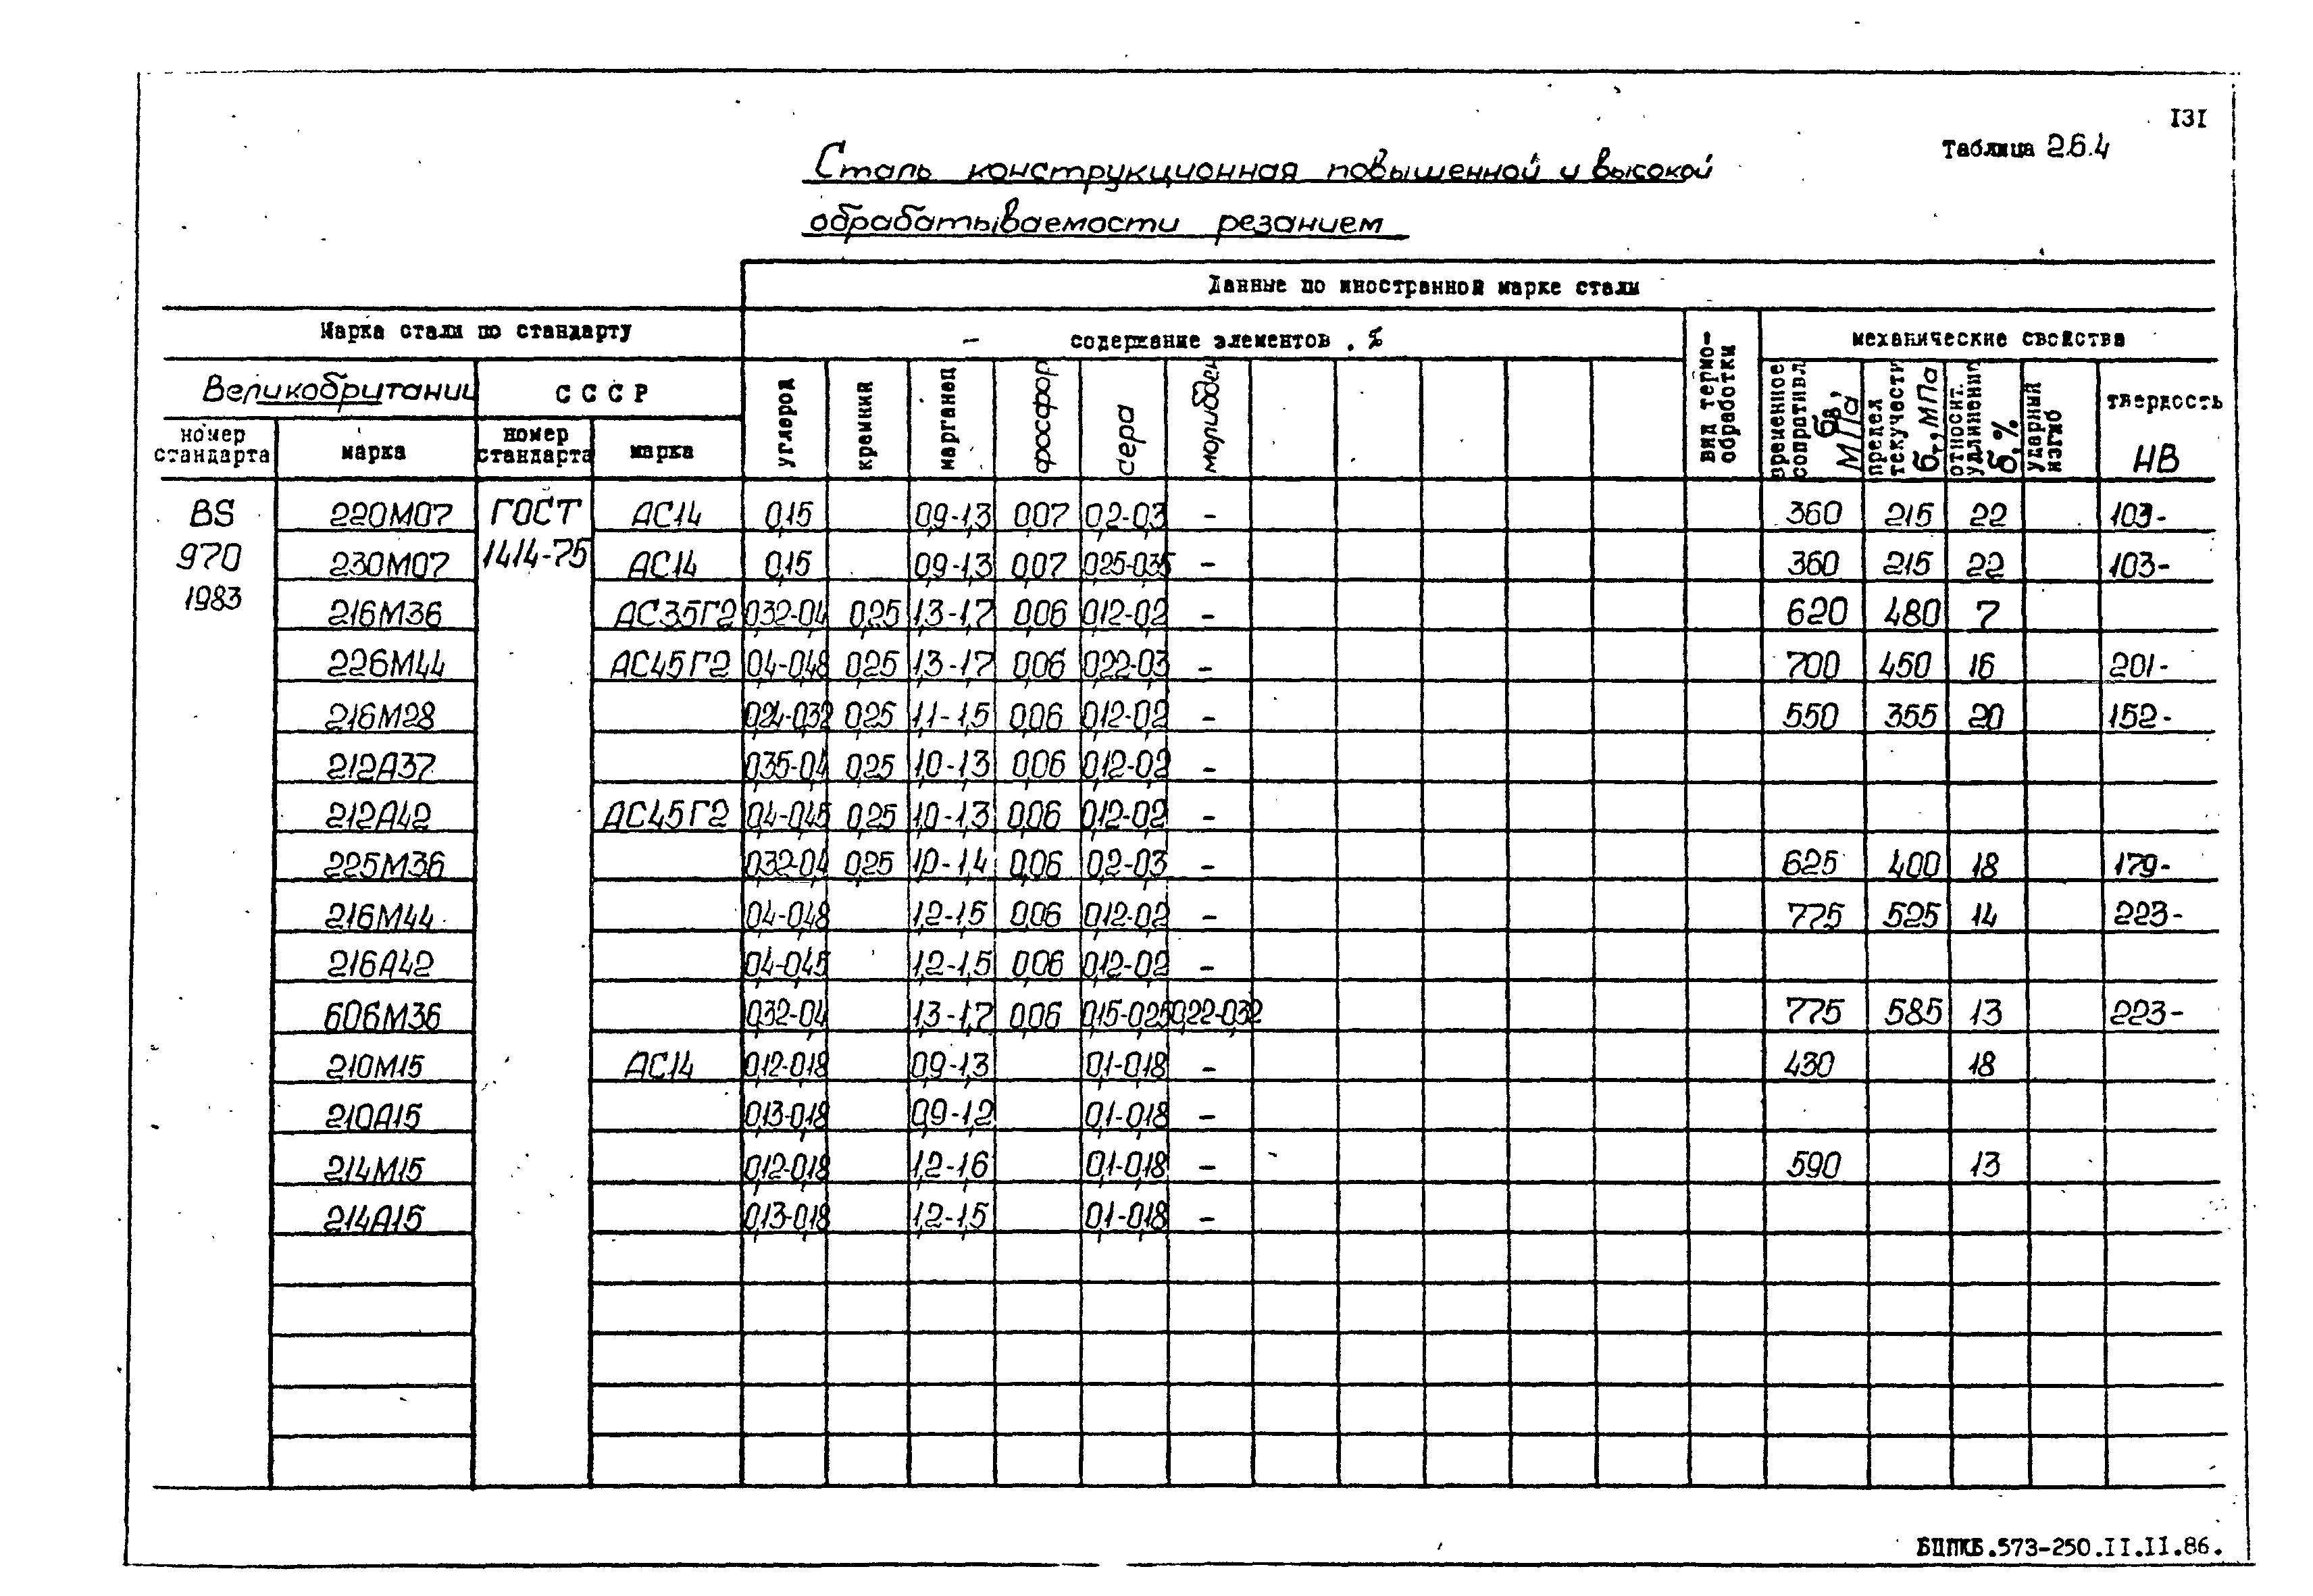 131
Таблица 2.6.4
Сталь конструкционная повышенной и высокой
обрабатываемости резанием
Данные по иностранной марке стали
Марка стали по стандарту
содержание элементов, %
вид термо-
обработки
механические свойства
Великобритании
СССР
номер
стандарта
марка
номер
стандарта
марка
углерод
кремний
марганец
фосфор
сера
молибден
временное
сопротивл.
бв,
МПа
предел
текучести
бт, МПа
относит.
удлинение
б, %
ударный
изгиб
твердость
НВ
BS 220М07 ГОСТ АС14 0,15 0,9-1,3 0,07 0,2-0,3 - 360 215 22 103-
970 230М07 1414-75 АС14 0,15 0,9-1,3 0,07 0,25-0,35 - 360 215 22 103-
1983 216М36 АС35Г2 0,32-0,4 0,25 1,3-1,7 0,06 0,12-0,2 - 620 480 7
226М44 АС45Г2 0,4-0,48 0,25 1,3-1,7 0,06 0,22-0,3 - 700 450 16 201-
216М28 0,24-0,32 0,25 1,1-1,5 0,06 0,12-0,2 - 550 355 20 152-
212А37 0,35-0,4 0,25 1,0-1,3 0,06 0,12-0,2 -
212А42 АС45Г2 0,4-0,45 0,25 1,0-1,3 0,06 0,12-0,2 -
225М36 0,32-0,4 0,25 1,0-1,4 0,06 0,2-0,3 - 625 400 18 179-
216М44 0,4-0,48 1,2-1,5 0,06 0,12-0,2 - 775 525 14 223-
216А42 0,4-0,45 1,2-1,5 0,06 0,12-0,2 -
606М36 0,32-0,4 1,3-1,7 0,06 0,15-0,25 0,22-0,32 775 585 13 223-
210М15 АС14 0,12-0,18 0,9-1,3 0,1-0,18 - 430 18
210А15 0,13-0,18 0,9-1,2 0,1-0,18 -
214М15 0,12-0,18 1,2-1,6 0,1-0,18 - 590 13
214А15 0,13-0,18 1,2-1,5 0,1-0,18 -
БЦПКБ.573-250.II.II.86.